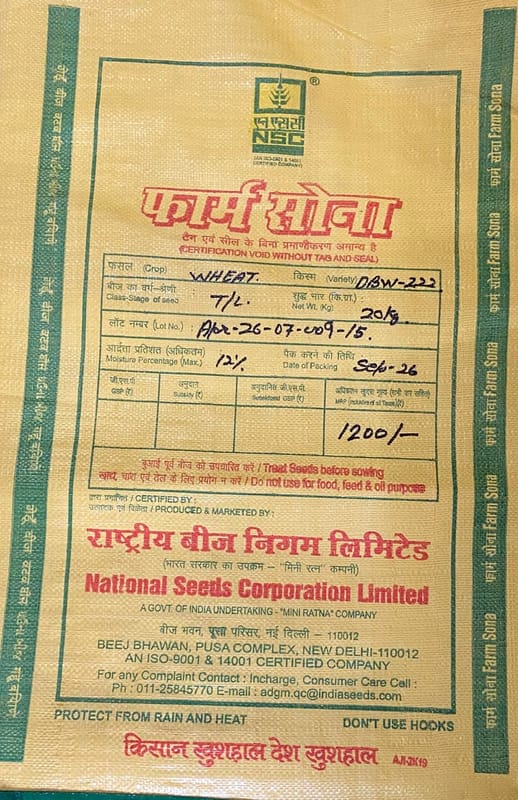 ®
एन एस सी
NSC
(AN ISO-9001 & 14001
CERTIFIED COMPANY)
फार्म सोना
टैग एवं सील के बिना प्रमाणीकरण अमान्य है
(CERTIFICATION VOID WITHOUT TAG AND SEAL)
फसल (Crop) WHEAT. किस्म (Variety) DBW-222
बीज का वर्ग-श्रेणी Class-Stage of seed T/L. शुद्ध भार (कि.ग्रा.) Net Wt. (Kg) 20kg.
लॉट नम्बर (Lot No.) : -26-07- -15.
आर्द्रता प्रतिशत (अधिकतम) Moisture Percentage (Max.) 12% पैक करने की तिथि Date of Packing Sep-26
जी.एस.पी. GSP (₹) अनुदान Subsidy (₹) अनुदानित जी.एस.पी. Subsidised GSP (₹) अधिकतम खुदरा मूल्य (सभी कर सहित) MRP (Inclusive of all Taxes)(₹)
1200/-
बुआई पूर्व बीज को उपचारित करें / Treat Seeds before sowing
खाद्य, चारा एवं तेल के लिए प्रयोग न करें / Do not use for food, feed & oil purpose
द्वारा प्रमाणित / CERTIFIED BY :
उत्पादक एवं विक्रेता / PRODUCED & MARKETED BY :
राष्ट्रीय बीज निगम लिमिटेड
(भारत सरकार का उपक्रम – "मिनी रत्न" कम्पनी)
National Seeds Corporation Limited
A GOVT. OF INDIA UNDERTAKING - "MINI RATNA" COMPANY
बीज भवन, पूसा परिसर, नई दिल्ली – 110012
BEEJ BHAWAN, PUSA COMPLEX, NEW DELHI-110012
AN ISO-9001 & 14001 CERTIFIED COMPANY
For any Complaint Contact : Incharge, Consumer Care Cell :
Ph : 011-25845770 E-mail : adgm.qc@indiaseeds.com
PROTECT FROM RAIN AND HEAT DON'T USE HOOKS
किसान खुशहाल देश खुशहाल AJI-2K19
फार्म सोना Farm Sona फार्म सोना Farm Sona फार्म सोना Farm Sona फार्म सोना Farm Sona फार्म सोना Farm Sona